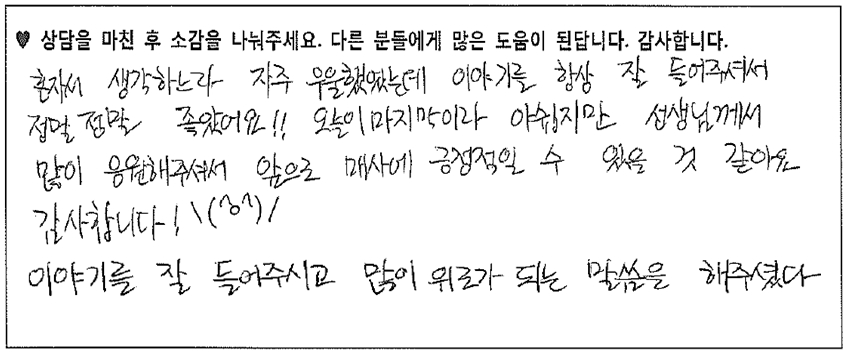 ♥ 상담을 마친 후 소감을 나눠주세요. 다른 분들에게 많은 도움이 된답니다. 감사합니다.
혼자서 생각하느라 자주 우울했었는데 이야기를 항상 잘 들어주셔서
정멀 정말 좋았어요!! 오늘이 마지막이라 아쉽지만 선생님께서
많이 응원해주셔서 앞으로 매사에 긍정적일 수 있을 것 같아요
감사합니다! \(^o^)/
이야기를 잘 들어주시고 많이 위로가 되는 말씀을 해주셨다